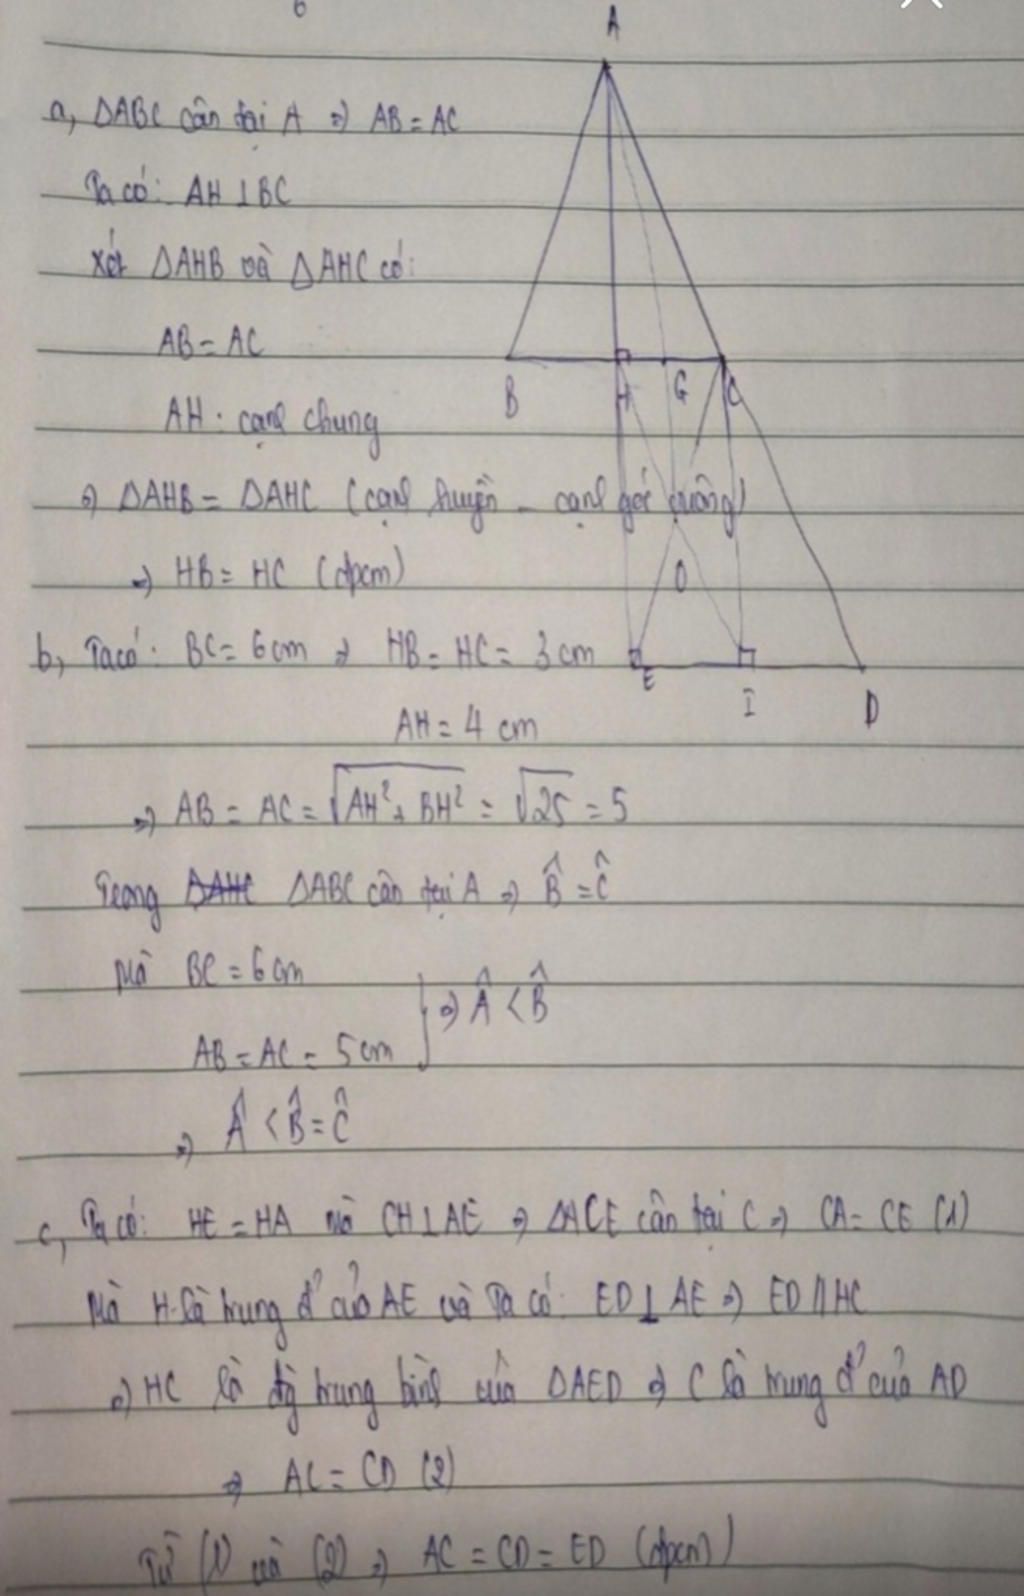 6
A
a, ΔABC cân tại A ⇒ AB = AC
Ta có: AH ⊥ BC
Xét ΔAHB và ΔAHC có:
AB = AC
B H G C
AH: cạnh chung
⇒ ΔAHB = ΔAHC (cạnh huyền - cạnh góc vuông)
⇒ HB = HC (đpcm)
O
b, Ta có: BC = 6cm ⇒ HB = HC = 3cm
E I D
AH = 4 cm
⇒ AB = AC = √AH² + BH² = √25 = 5
Trong ΔAHC ΔABC cân tại A ⇒ B̂ = Ĉ
Mà BC = 6cm
AB = AC = 5cm } ⇒ Â < B̂
⇒ Â < B̂ = Ĉ
c, Ta có: HE = HA mà CH ⊥ AE ⇒ ΔACE cân tại C ⇒ CA = CE (1)
Mà H là trung đ' của AE và Ta có: ED ⊥ AE ⇒ ED // HC
⇒ HC là đg trung bình của ΔAED ⇒ C là trung đ' của AD
⇒ AC = CD (2)
Từ (1) và (2) ⇒ AC = CD = ED (đpcm)